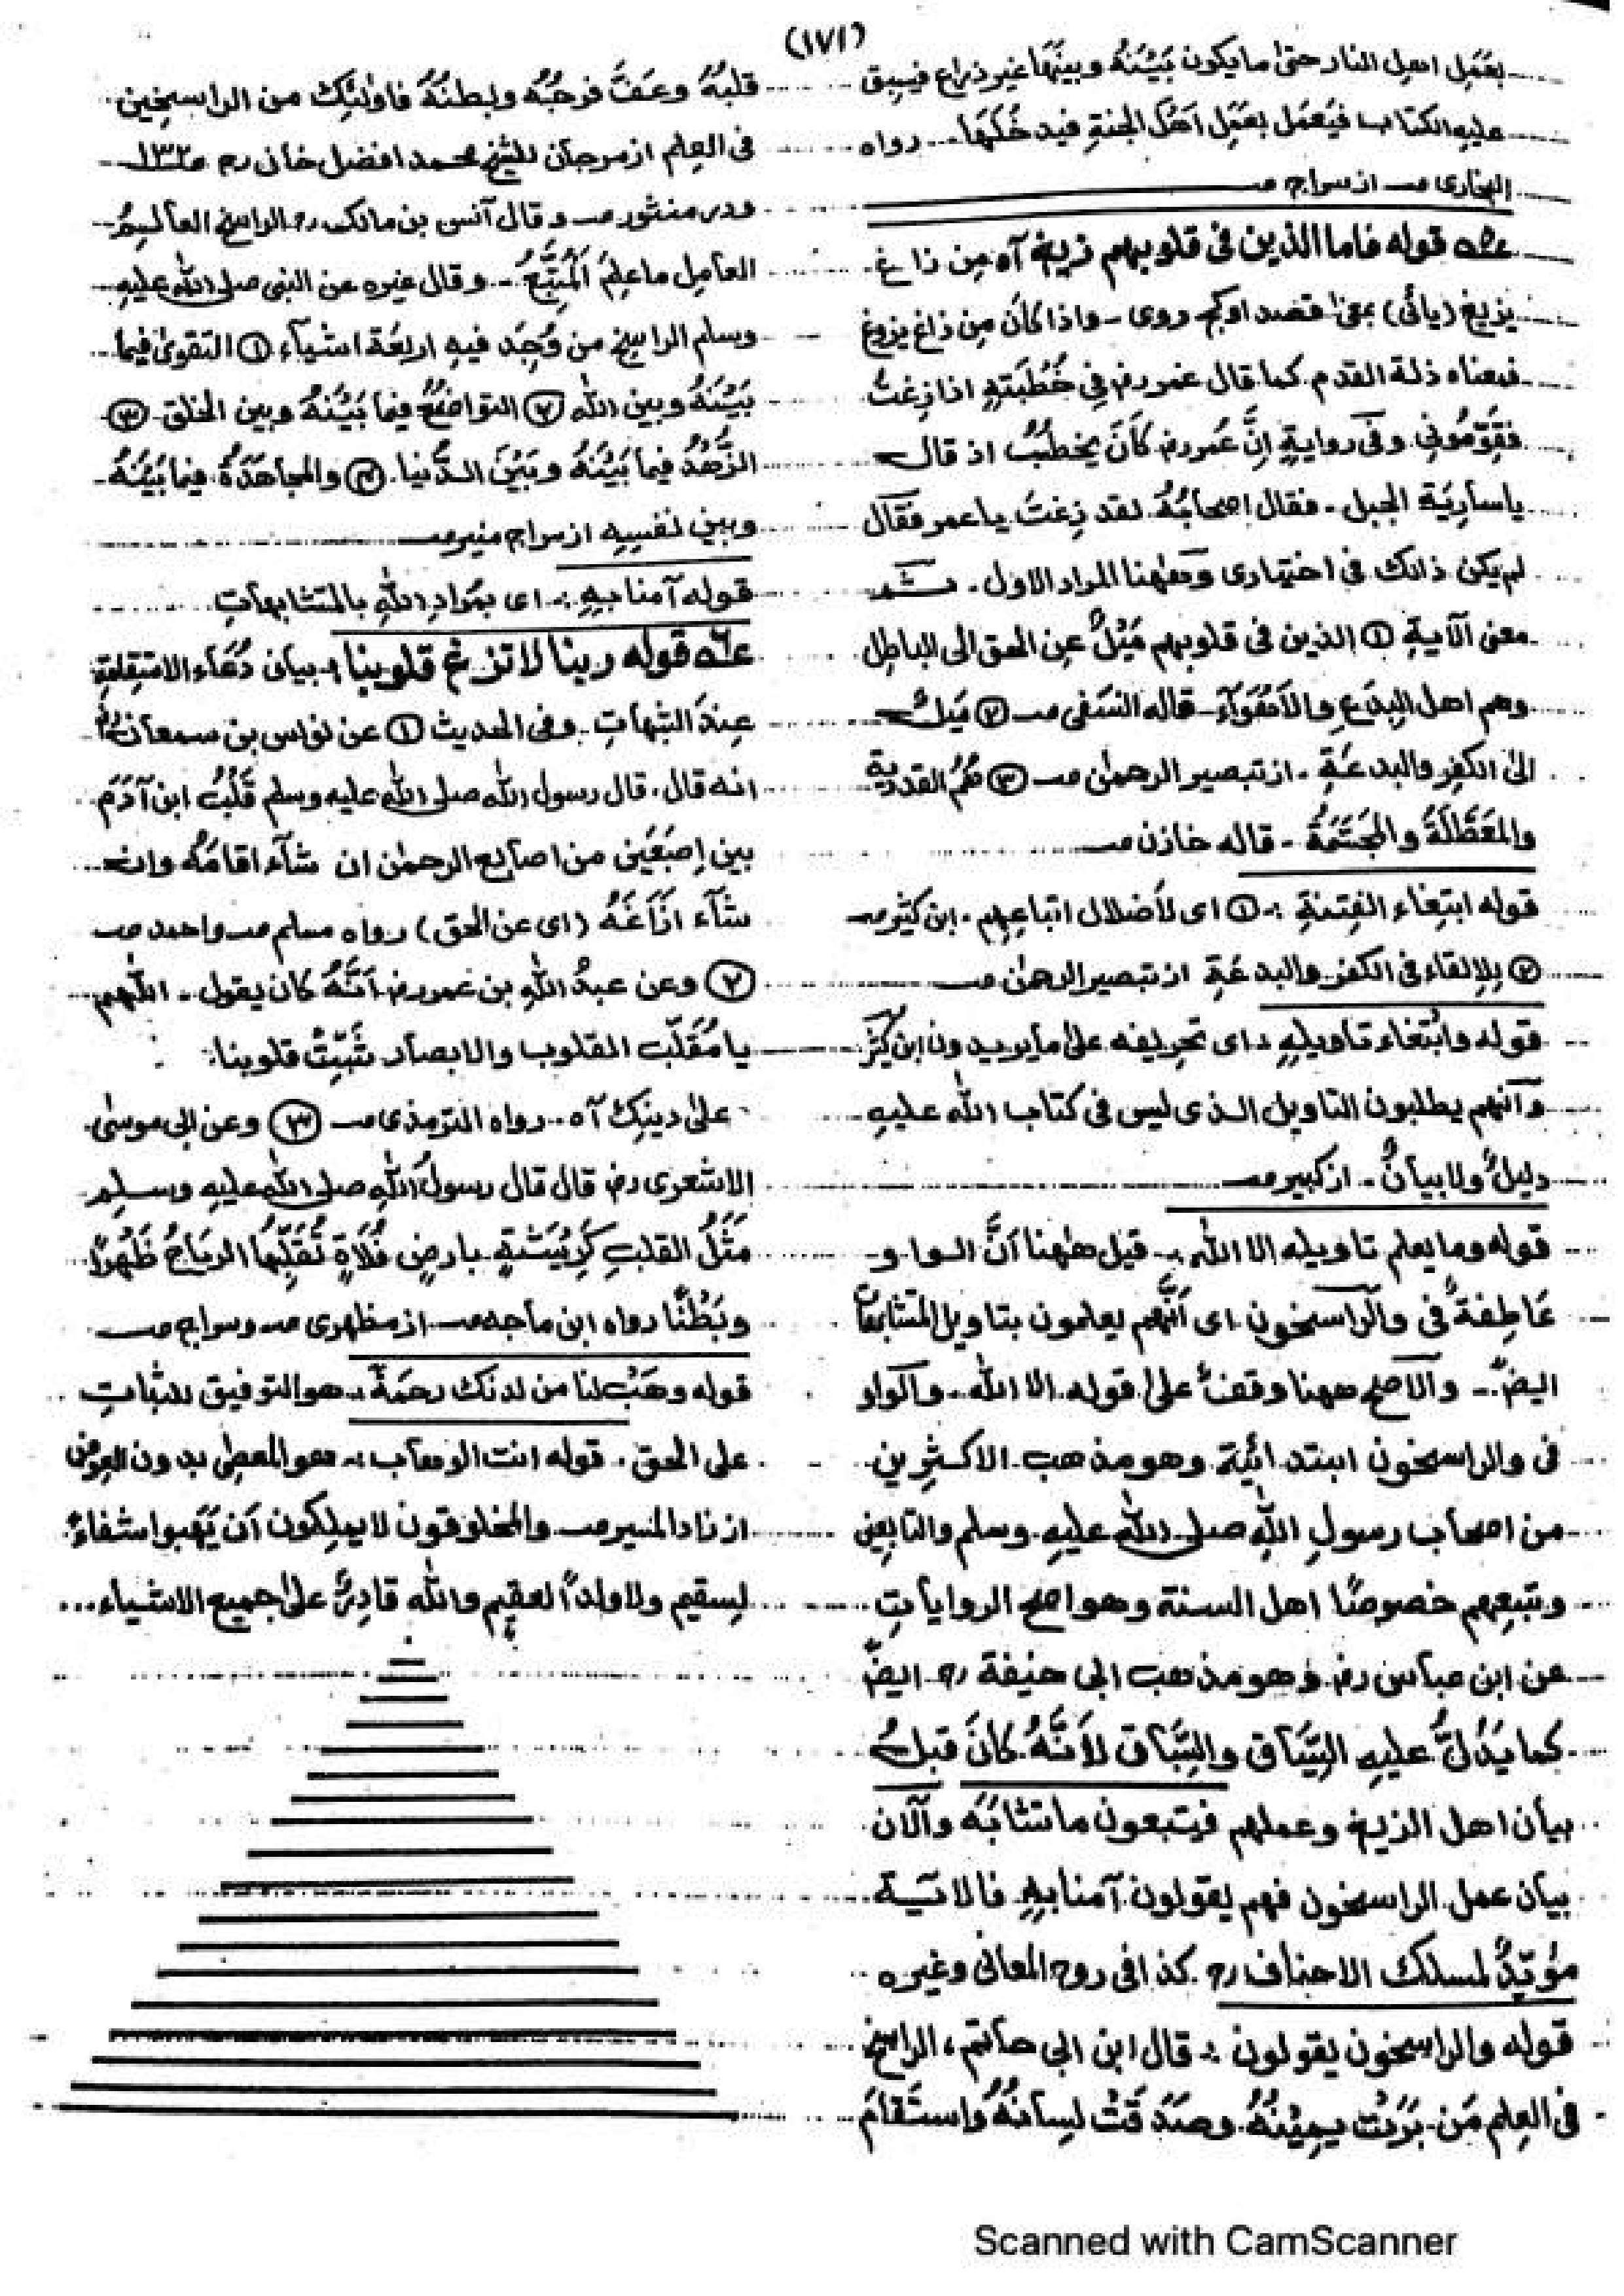 (۱۷۱)
بعَمَلِ اهلِ النار حتیٰ ما یکون بَیْنَهُ وبینَهَا غیر ذراع فیسبق
علیهِ الکتاب فیَعمَل بعَمَلِ اَهْلِ الجنةِ فید خُلَهَا۔۔ رواه
البخاری صـ از سراج صـ
قوله فاما الذین فی قلوبهم زیغ آه مِن زاغ۔
یزیغ (یائی) بمعنیٰ قصد اوکجـ روی ۔ واذا کان مِن زاغ یزوغ
فمعناه زلة القدم کما قال عمر رض فِی خُطْبَتِهٖ اذا زِغتُ
فقَوِّمُونِی وفی روایةٍ اِنَّ عُمر رض کَانَ یخطُبُ اذ قال
یا ساریَة الجبل ۔ فقال اصحابُهُ لقد زِغتَ یا عمر فقال
لم یکن ذالک فی اختیاری وههنا المراد الاول ۔ ثمـ
معنی الآیةِ ① الذین فی قلوبهم مَیْلٌ عن الحق الی الباطِل
وهم اهل البِدَعِ والاَهْوَآءِ ۔ قاله النسَفی صـ ② مَیلٌ
الیٰ الکفرِ والبدعَةِ ۔ از تبصیر الرحمٰن صـ ③ هُمُ القدریة
والمُعَطَّلَةُ والمُجَسَّمَةُ ۔ قاله خازن صـ
قوله ابتِغاء الفِتنةِ :۔ ① ای لأضلال اتباعِهِم ۔ ابن کثیر صـ
② بالالقاء فی الکفر والبدعَةِ از تبصیر الرحمٰن صـ
قوله وابْتغاء تاویلهٖ ؛ ای تحریفه علیٰ ما یریدون ابن کثیر
وَاَنّهم یطلبون التاویل الـذی لیس فی کتاب الله علیهِ
دلیلٌ ولا بیانٌ ۔ از کبیر صـ
قوله وما یعلم تاویله الا الله :۔ قیل هٰهنا اَنَّ الـوا و
عَاطِفةٌ فی والرَاسخون ای اَنَّهم یعلمون بتاویل المتشابهات
ایضً ۔ والاصح ههنا وقفٌ علیٰ قوله الا الله ۔ والواو
فی والراسخون ابتدائیة وهو مذهب الاکثرِین
من اصحاب رسولِ اللهِ صلی الله علیهِ وسلم والتابعِین
وتبعهم خصوصًا اهل السنة وهو اصح الروایاتِ
عن ابن عباس رض وهو مذهب ابی حنیفة رح ایضً
کما یَدُلُّ علیهِ السِّیَاق والسِّبَاق لِاَنَّهُ کانَ قبلُ
بیان اهل الزیغ وعملهم فیتبعون ما تشابَهَ والآن
بیان عمل الراسخون فهم یقولون آمنا بهٖ فالآیـة
مؤیّدٌ لمسلک الاحناف رح کذا فی روح المعانی وغیره
قوله والراسخون یقولون :۔ قال ابن ابی حاتم ، الراسخ
فی العِلم مَن ۔ بَرَتْ یمِیْنُهُ وصَدَ قَتْ لِسانُهُ واسْتَقامَ
قلبُهُ وعَفَّ فرجُهُ وبطنُهُ فاولٰئک من الراسِخین
فی العِلم از مرجان للشیخ محمد افضل خان رح
ودر منثور صـ وقال آنس بن مالک رض الراسخ العالـمُ
العامِل ما عِلمَ المُتَّبِعُ ۔ وقال غیره عن النبی صلی الله علیهِ
وسلم الراسِخ من وُجِدَ فیهِ اربعَة اشیآء ① التقویٰ فیما
بَیْنَهُ وبین الله ② التواضعُ فیما بَیْنَهُ وبین الخلق ③
الزُّهْدُ فیما بَیْنَهُ وبَیْنَ الـدُّنیا ۔ ④ والمجاهَدَةُ فیما بَیْنَهُ
وبین نفسِهٖ از سراج منیر صـ
قوله آمنا بهٖ :۔ ای بمُرادِ اللهِ بالمتشابهاتِ
قوله ربنا لا تزغ قلوبنا :۔ بیان دُعَاء الاستِقامَةِ
عِندَ الشبهاتِ ۔ وفی الحدیث ① عن نواس بن سمعان رض
انه قال ۔ قال رسول الله صلی الله علیه وسلم قَلْبُ ابن آدَمَ
بین اِصبَعَین من اصابع الرحمٰن ان شآء اقامَهُ وان
شآء ازَاغَهُ (ای عن الحق) رواه مسلم صـ واحمد صـ
② وعن عبدُ اللهِ بن عمر رض اَنَّهُ کان یقول ۔ اللّٰهم
یا مُقَلّبَ القلوب والابصار ثَبِّتْ قلوبنا :
علیٰ دینِک آه ۔۔ رواه الترمذی صـ ③ وعن ابی موسیٰ
الاشعری رض قال قال رسولُ اللهِ صلی الله علیهِ وسـلم
مَثَلُ القلبِ کَرِیْشَةٍ بارضٍ فُلاَةٍ تُقلِّبُهَا الریَاحُ ظَهْرًا
وبَطْنًا رواه ابن ماجه صـ از مظهری صـ وسراج صـ
قوله وهَبْ لنا من لدنک رحمَةً :۔ هو التوفیق للثباتِ
علی الحق ۔ قوله انت الوهاب :۔ هو المعطِی بدون العِوض
از زاد المسیر صـ والمخلوقون لا یملِکون اَن یَّهبوا شفاءً
لِسقیم ولا ولدًا لعقیم والله قادِرٌ علیٰ جمیع الاشیاء...
Scanned with CamScanner